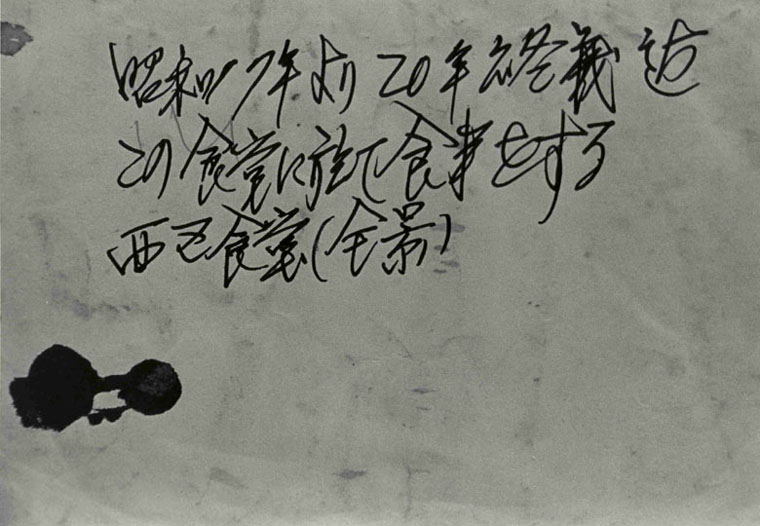 昭和17年より20年終戦迄
この食堂に於て食事をする
西已食堂(全景)